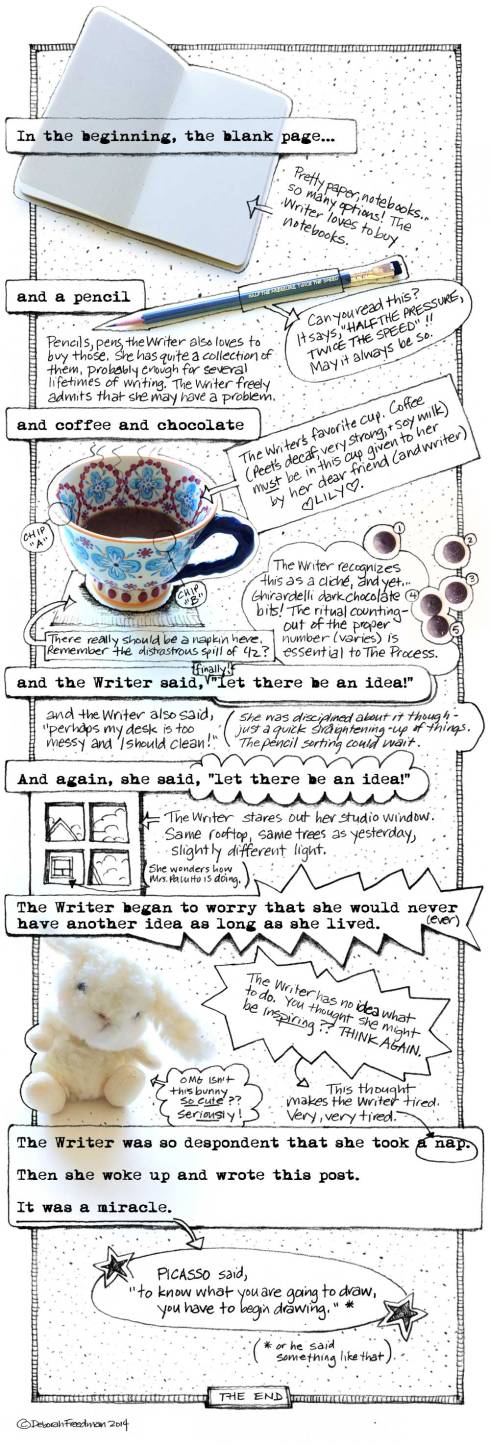 In the beginning, the blank page...
Pretty paper, notebooks...
so many options! The
Writer loves to buy
notebooks.
and a pencil
HALF THE PRESSURE, TWICE THE SPEED
Can you read this?
It says, "HALF THE PRESSURE,
TWICE THE SPEED"!!
May it always be so.
Pencils, pens, the Writer also loves to
buy those. She has quite a collection of
them, probably enough for several
lifetimes of writing. The Writer freely
admits that she may have a problem.
and coffee and chocolate
The Writer's favorite cup. Coffee
(Peet's decaf, very strong, + soy milk)
must be in this cup given to her
by her dear friend (and writer)
♡LILY♡.
CHIP
"A"
CHIP
"B"
1
2
3
4
5
The Writer recognizes
this as a cliché, and yet...
Ghirardelli dark chocolate
bits! The ritual counting-
out of the proper
number (varies) is
essential to The Process.
There really should be a napkin here.
Remember the distrastrous spill of 4/2?
finally!
and the Writer said, "let there be an idea!"
and the Writer also said,
"perhaps my desk is too
messy and I should clean!"
(She was disciplined about it though -
just a quick straightening-up of things.
The pencil sorting could wait.
And again, she said, "let there be an idea!"
The Writer stares out her studio window.
Same rooftop, same trees as yesterday,
slightly different light.
(She wonders how
Mrs. Paluito is doing.)
The Writer began to worry that she would never
(ever)
have another idea as long as she lived.
The Writer has no idea what
to do. You thought she might
be inspiring?? THINK AGAIN.
OMG isn't
this bunny
so cute??
Seriously!
This thought
makes the Writer tired.
Very, very tired.
The Writer was so despondent that she took a nap.
Then she woke up and wrote this post.
It was a miracle.
PICASSO said,
"to know what you are going to draw,
you have to begin drawing." *
(* or he said
something like that)
THE END
©Deborah Freedman 2014